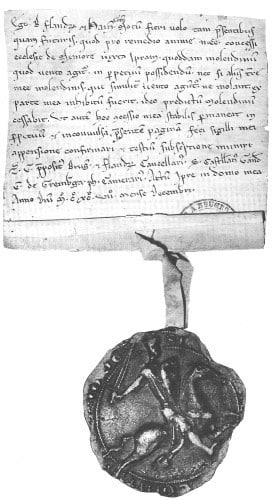 Ego B. Flandr. et Hain. Comes notum fieri volo tam presentibus
quam futuris, quod pro remedio anime mee concessi
ecclesie de juxta Ipram, quoddam molendinum
quod vento agitur in perpetuum possidendum nec si aliquis trans
mee molendinis que similiter vento aguntur ne molant, ex
parte mea inhibitum fuerit, ideo predictum molendinum
cessabit. Ut autem hec concessio mea stabilis permaneat in
perpetuum et inconvulsa, presentem paginam feci sigilli mei
appensione confirmari et testium subscriptione muniri
S. G. prepositi Brug. et Flandr. Cancellarii. S. Castellani Gand.
T. de ph. Camerarii. Actum Ipre in domo mea
Anno Domini M. C. XC. mense Decembri.